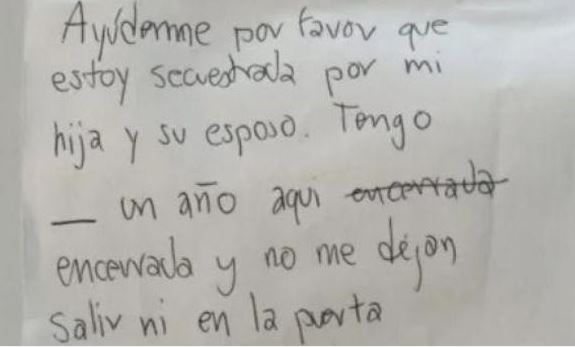 Ayúdenme por favor que
estoy secuestrada por mi
hija y su esposo. Tengo
__ un año aqui encerrada
encerrada y no me dejan
salir ni en la puerta